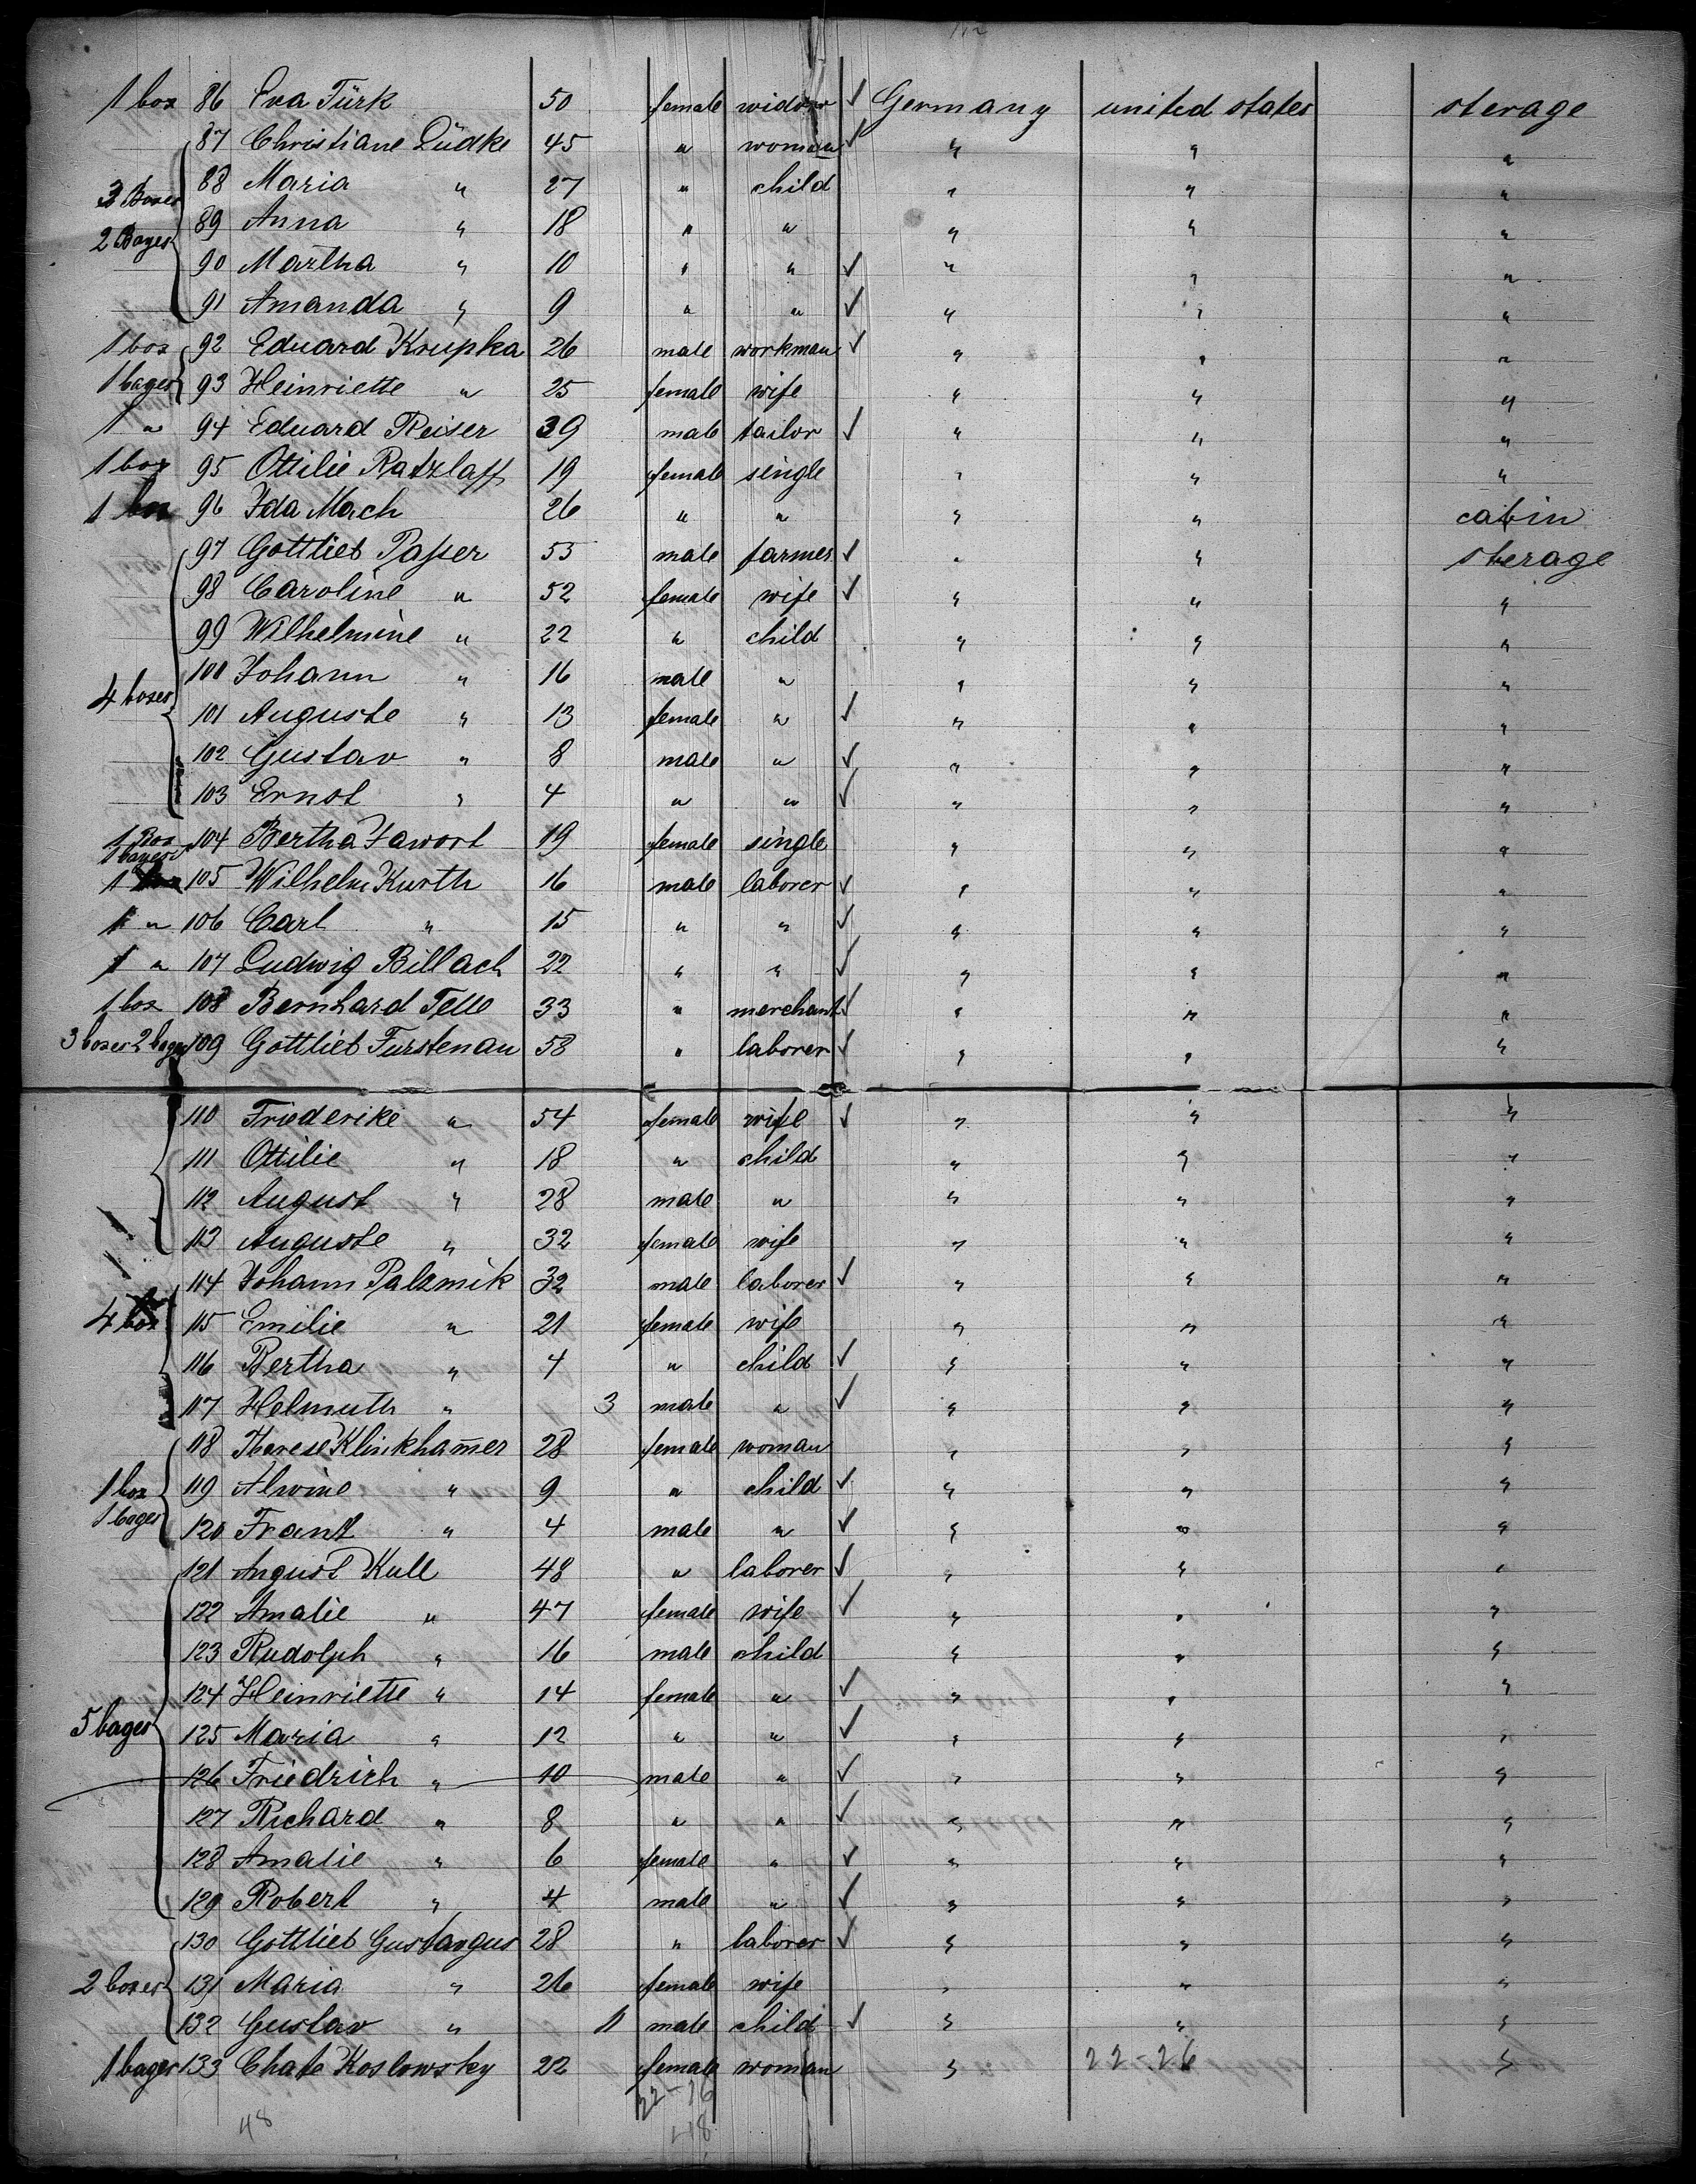 1 box 86 Eva Türk 50 female widow ✓ Germany united states sterage
87 Christiane Lüdke 45 " woman ✓ " " "
88 Maria " 27 " child " " "
3 Boxes
89 Anna " 18 " " " " "
2 Bages
90 Martha " 10 " " ✓ " " "
91 Amanda " 9 " " ✓ " " "
1 box 92 Eduard Krupka 26 male workman ✓ " " "
1 bages 93 Heinriette " 25 female wife " " "
1 " 94 Eduard Reiser 39 male tailor ✓ " " "
1 box 95 Ottilie Ratzlaff 19 female single " " "
1 box 96 Ida Mach 26 " " " " cabin
97 Gottlieb Paßer 55 male farmer ✓ " " sterage
98 Caroline " 52 female wife ✓ " " "
99 Wilhelmine " 22 " child " " "
100 Johann " 16 male " " " "
4 boxes
101 Auguste " 13 female " ✓ " " "
102 Gustav " 8 male " ✓ " " "
103 Ernst " 4 " " ✓ " " "
1 Box 104 Bertha Jawort 19 female single " " "
1 bages
1 105 Wilhelm Kurth 16 male laborer ✓ " " "
1 " 106 Carl " 15 " " ✓ " " "
1 " 107 Ludwig Billach 22 " " ✓ " " "
1 box 108 Bernhard Telle 33 " merchant ✓ " " "
3 boxes 2 bages 109 Gottlieb Furstenau 58 " laborer ✓ " " "
110 Friederike " 54 female wife ✓ " " "
111 Ottilie " 18 " child " " "
112 August " 28 male " " " "
113 Auguste " 32 female wife " " "
114 Johann Palzmik 32 male laborer ✓ " " "
4 box 115 Emilie " 21 female wife " " "
116 Bertha " 4 " child ✓ " " "
117 Helmuth " 3 male " ✓ " " "
118 Therese Klinkham̄er 28 female woman " " "
1 box 119 Alwine " 9 " child ✓ " " "
1 bages 120 Frantz " 4 male " ✓ " " "
121 August Kull 48 " laborer ✓ " " "
122 Amalie " 47 female wife ✓ " " "
123 Rudolph " 16 male child " " "
124 Heinriette " 14 female " ✓ " " "
5 bages 125 Maria " 12 " " ✓ " " "
126 Friedrich " 10 male " ✓ " " "
127 Richard " 8 " " ✓ " " "
128 Amalie " 6 female " ✓ " " "
129 Robert " 4 male " ✓ " " "
130 Gottlieb Gustavgus 28 " laborer ✓ " " "
2 boxes 131 Maria " 26 female wife " " "
132 Gustav " 11 male child ✓ " " "
1 bages 133 Chate Koslowsky 22 female woman " 22-26 "
22-26
48
48